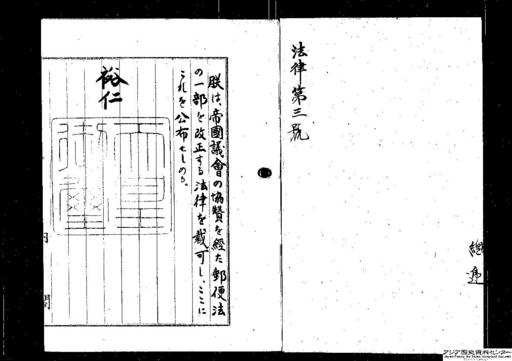 法律第三號
總
朕は、帝國議會の協贊を經た郵便法
の一部を改正する法律を裁可し、ここに
これを公布せしめる。
裕仁
天皇
御璽
内 閣
アジア歴史資料センター